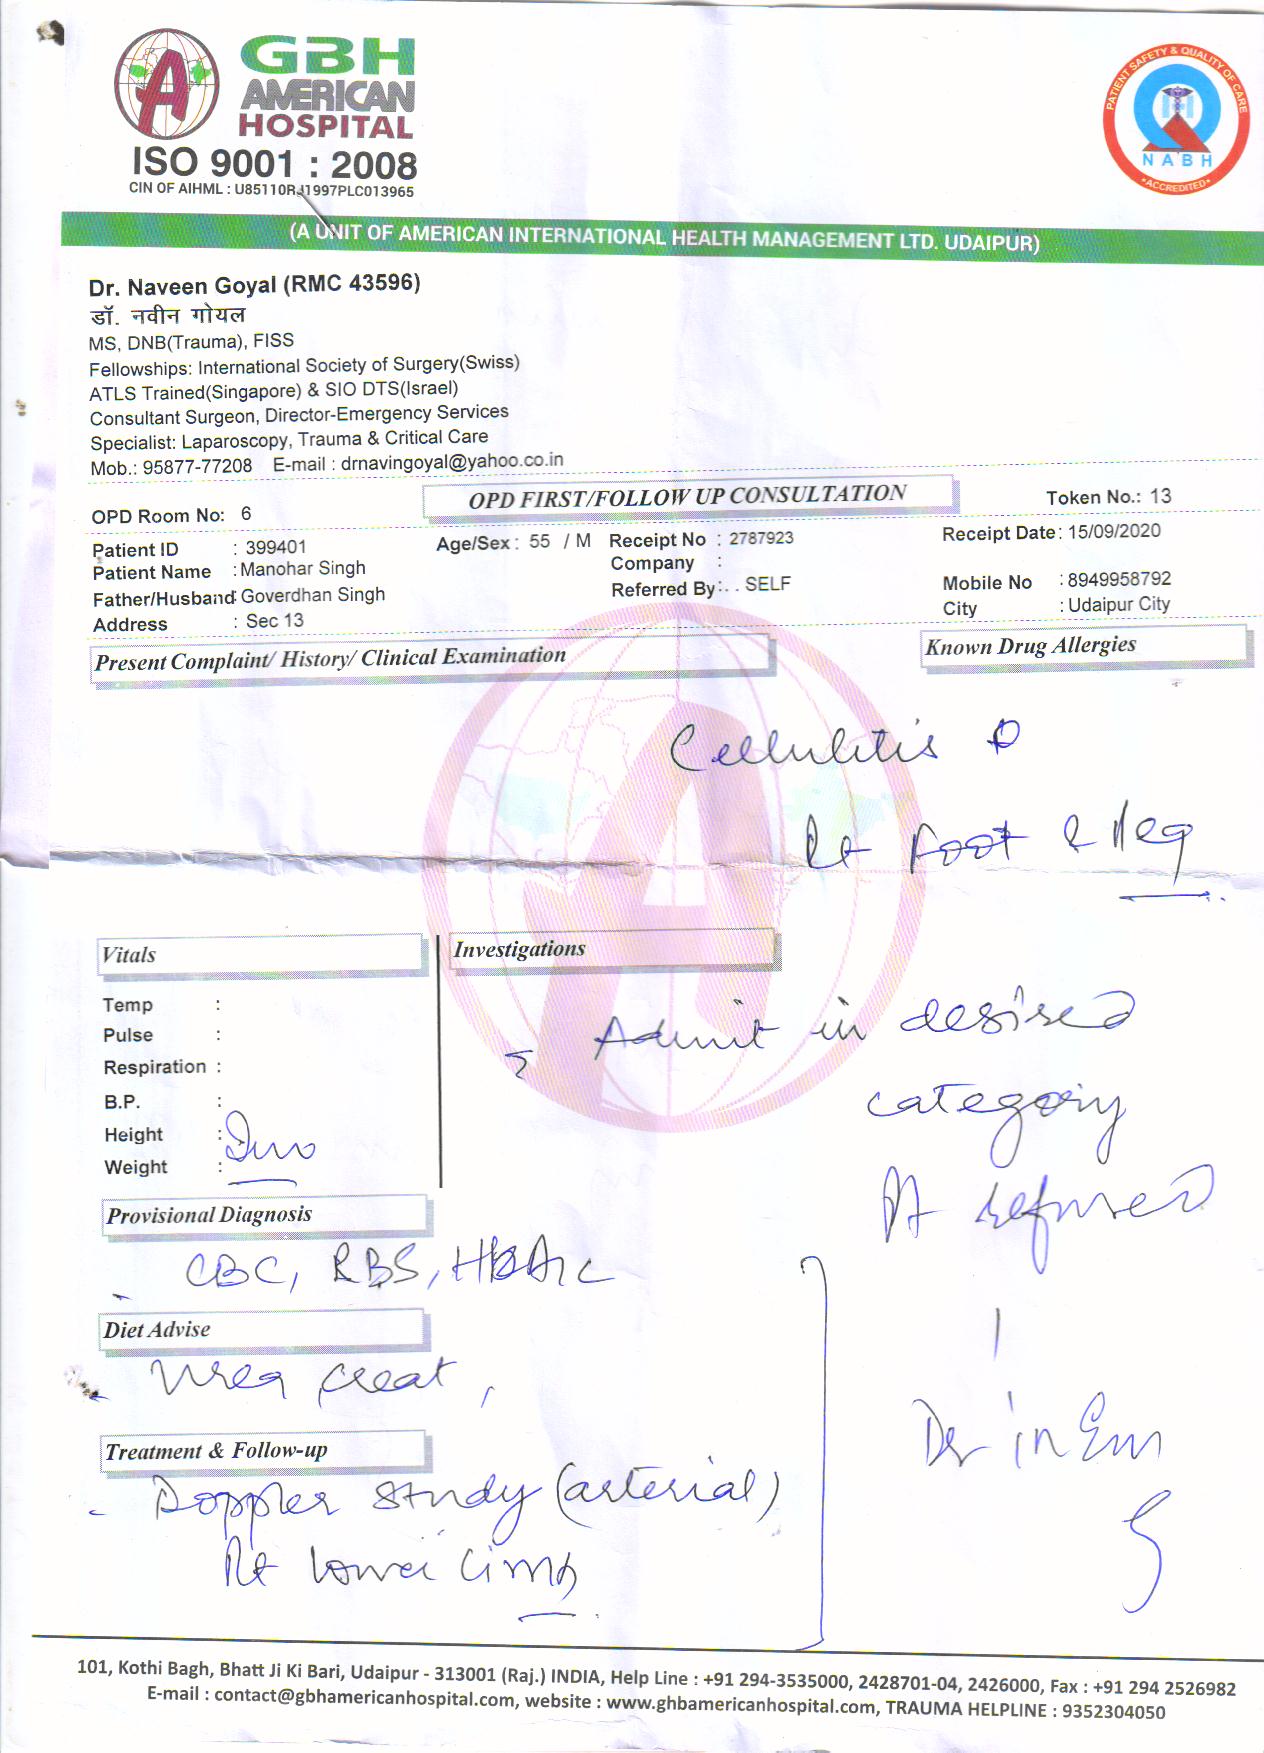 GBH
AMERICAN
HOSPITAL
ISO 9001 : 2008
CIN OF AIHML : U85110RJ1997PLC013965
PATIENT SAFETY & QUALITY OF CARE
NABH
•ACCREDITED•
(A UNIT OF AMERICAN INTERNATIONAL HEALTH MANAGEMENT LTD. UDAIPUR)
Dr. Naveen Goyal (RMC 43596)
डॉ. नवीन गोयल
MS, DNB(Trauma), FISS
Fellowships: International Society of Surgery(Swiss)
ATLS Trained(Singapore) & SIO DTS(Israel)
Consultant Surgeon, Director-Emergency Services
Specialist: Laparoscopy, Trauma & Critical Care
Mob.: 95877-77208 E-mail : drnavingoyal@yahoo.co.in
OPD Room No: 6 OPD FIRST/FOLLOW UP CONSULTATION Token No.: 13
Patient ID : 399401 Age/Sex : 55 / M Receipt No : 2787923 Receipt Date: 15/09/2020
Patient Name : Manohar Singh Company :
Father/Husband: Goverdhan Singh Referred By: . . SELF Mobile No : 8949958792
Address : Sec 13 City : Udaipur City
Present Complaint/ History/ Clinical Examination Known Drug Allergies
Cellulitis
Rt foot & leg
Vitals Investigations
Temp :
Pulse :
Respiration :
B.P. :
Height :
Weight :
Inv
Admit in desired
category
Pt refused
Provisional Diagnosis
CBC, RBS, HbA1c
Diet Advise
Urea creat,
Treatment & Follow-up
Doppler study (arterial)
Rt lower limb
in Em
101, Kothi Bagh, Bhatt Ji Ki Bari, Udaipur - 313001 (Raj.) INDIA, Help Line : +91 294-3535000, 2428701-04, 2426000, Fax : +91 294 2526982
E-mail : contact@gbhamericanhospital.com, website : www.ghbamericanhospital.com, TRAUMA HELPLINE : 9352304050